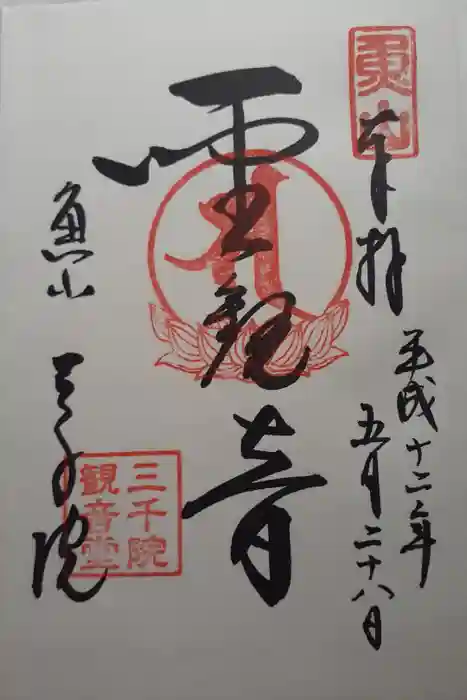 魚山
奉拝
平成十二年
五月二十八日
聖観音
魚山 三千院
三千院
観音堂